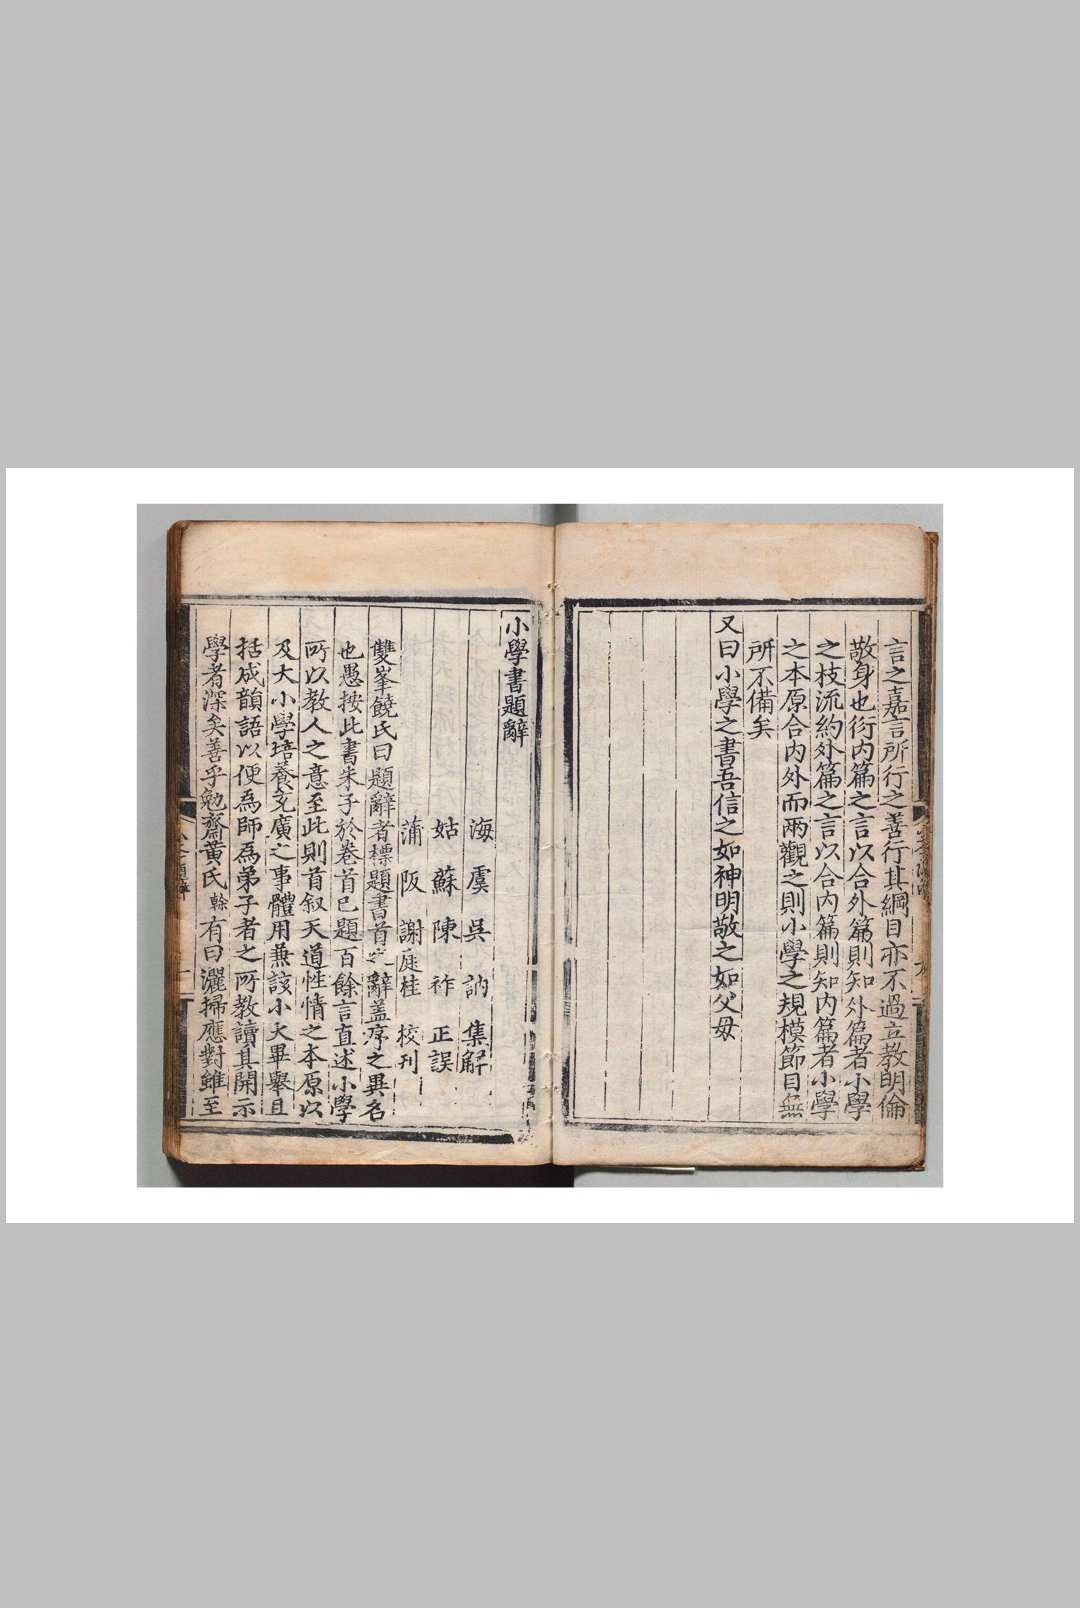 言之嘉言所行之善行其綱目亦不過立教明倫
敬身也衍內篇之言以合外篇則知外篇者小學
之枝流約外篇之言以合內篇則知內篇者小學
之本原合內外而兩觀之則小學之規模節目無
所不備矣
又曰小學之書吾信之如神明敬之如父母
小學書題辭
海虞吳訥集解
姑蘇陳祚正誤
蒲阪謝庭桂校刊
雙峯饒氏曰題辭者標題書首之辭盖序之異名
也愚按此書朱子於卷首已題百餘言直述小學
所以教人之意至此則首叙天道性情之本原以
及大小學培養充廣之事體用兼該小大畢舉且
括成韻語以便為師為弟子者之所教讀其開示
學者深矣善乎勉齋黃氏榦有曰灑掃應對雖至